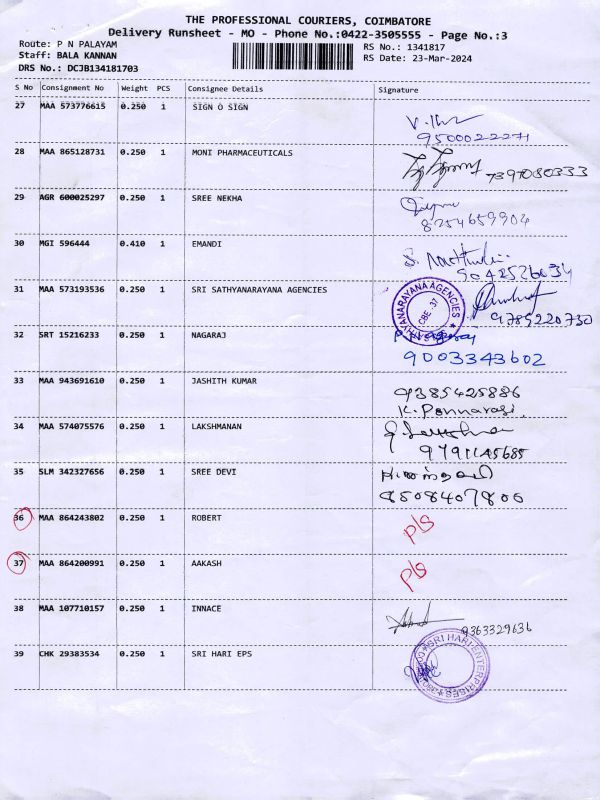 THE PROFESSIONAL COURIERS, COIMBATORE
Delivery Runsheet - MO - Phone No.:0422-3505555 - Page No.:3
Route: P N PALAYAM
RS No.: 1341817
Staff: BALA KANNAN
RS Date: 23-Mar-2024
DRS No.: DCJB134181703
S No Consignment No Weight PCS Consignee Details Signature
27 MAA 573776615 0.250 1 SIGN O SIGN
9500022271
28 MAA 865128731 0.250 1 MONI PHARMACEUTICALS
7397080333
29 AGR 600025297 0.250 1 SREE NEKHA
8254659904
30 MGI 596444 0.410 1 EMANDI
9042526634
31 MAA 573193536 0.250 1 SRI SATHYANARAYANA AGENCIES
CBE - 37
9789220730
32 SRT 15216233 0.250 1 NAGARAJ
9003343602
33 MAA 943691610 0.250 1 JASHITH KUMAR
9385425886
K. Ponnarasi
34 MAA 574075576 0.250 1 LAKSHMANAN
9791145685
35 SLM 342327656 0.250 1 SREE DEVI
9508407806
36 MAA 864243802 0.250 1 ROBERT P/S
37 MAA 864200991 0.250 1 AAKASH P/S
38 MAA 107710157 0.250 1 INNACE
9363329636
39 CHK 29383534 0.250 1 SRI HARI EPS
SRI HARI ENTERPRISES